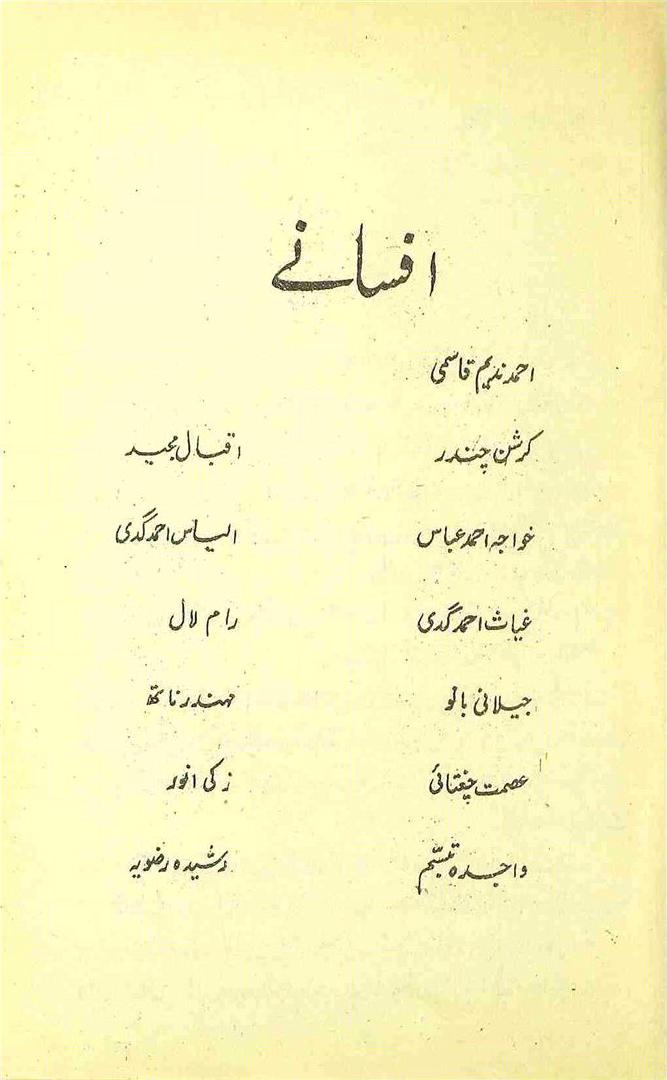 افسانے
احمد ندیم قاسمی
کرشن چندر
اقبال مجید
خواجہ احمد عباس
الیاس احمد گدی
غیاث احمد گدی
رام لال
جیلانی بانو
مہندر ناتھ
عصمت چغتائی
زکی انور
واجدہ تبسّم
رشیدہ رضویہ